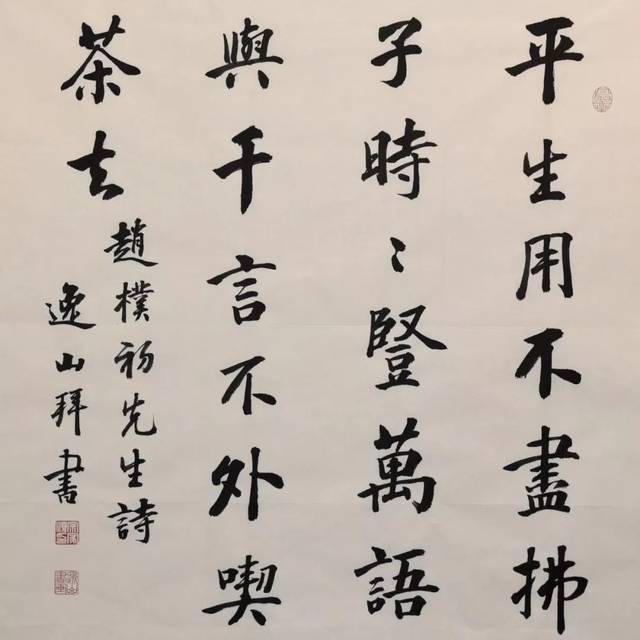 平生用不盡拂
子時〻豎萬語
與千言不外喫
茶去
趙樸初先生詩
逸山拜書